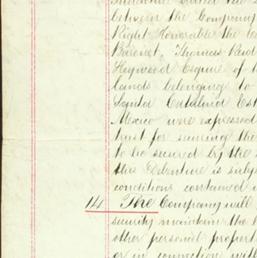 between the Company
Right Honorable the
Baronet, Thomas
Heywood Esquire of
Lands belonging to
Santa Catalina Est
Mexico were expressed
trust for securing the
to be secured by the
this Indenture is
conditions contained
14 The Company will
security maintain the
other personal propert
or in connection with